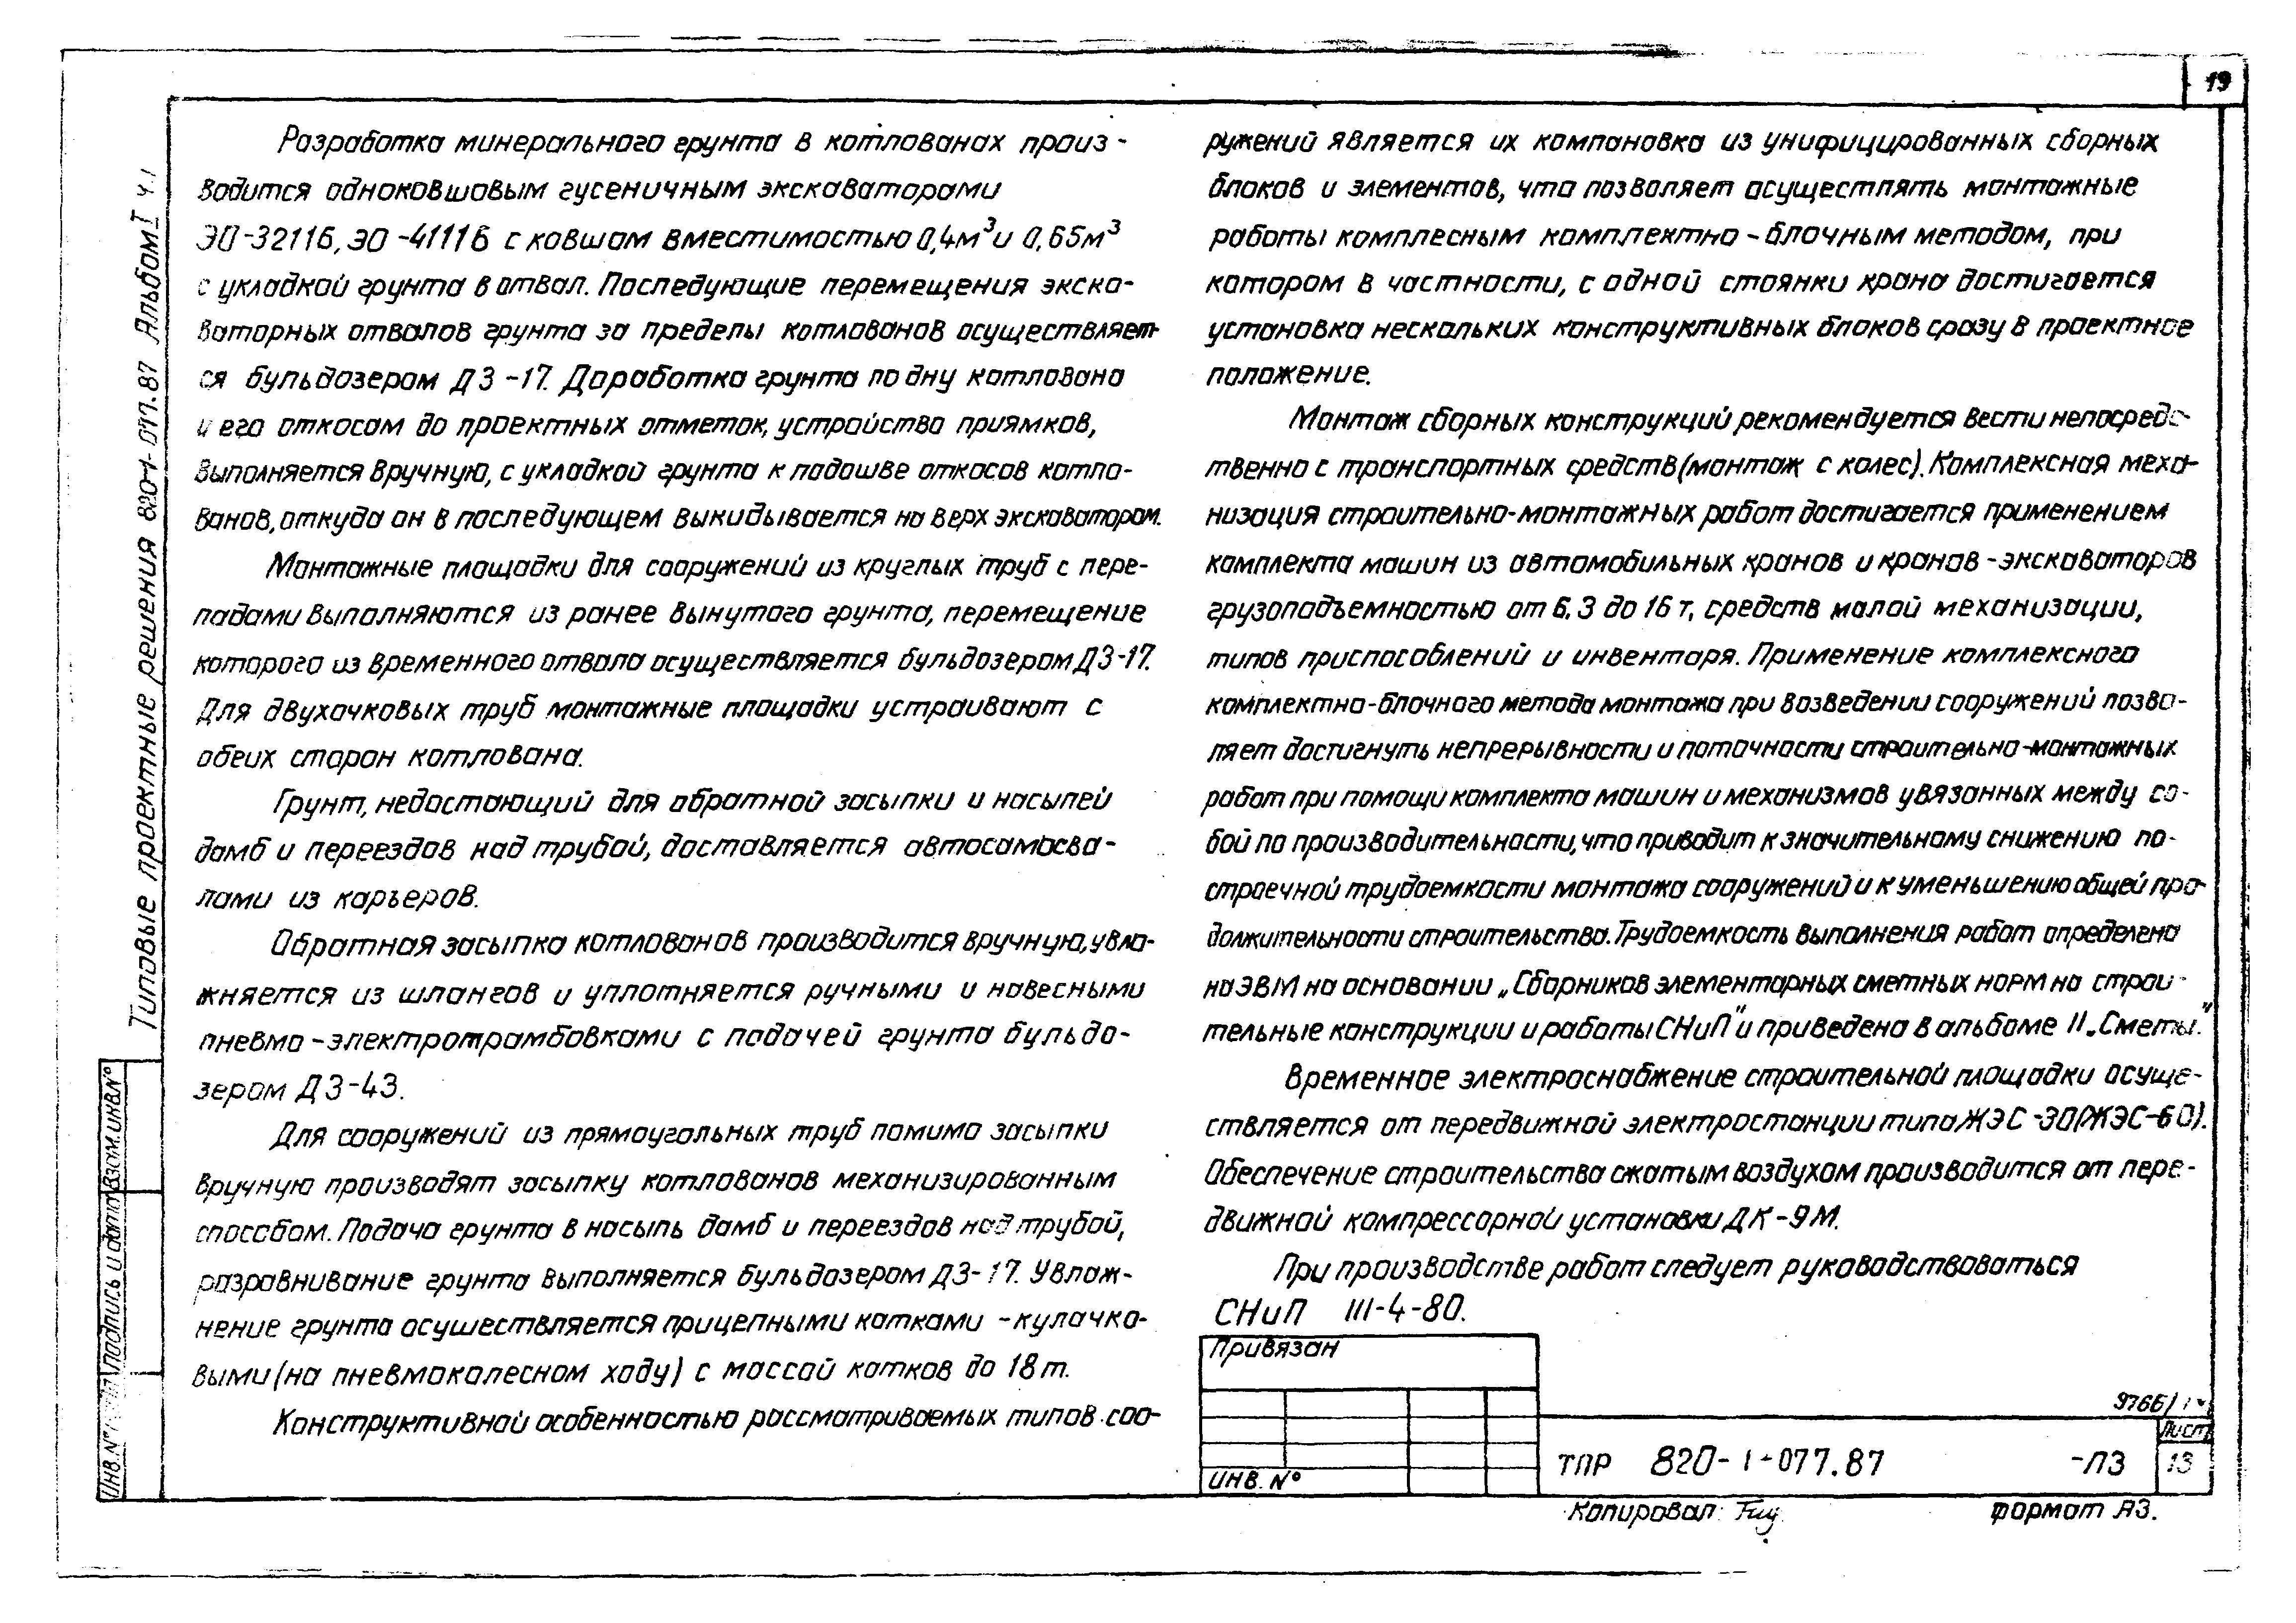 19
Типовые проектные решения 820-1-077.87 Альбом I ч.1
Разработка минерального грунта в котлованах произ-
водится одноковшовым гусеничным экскаваторами
ЭО-3211Б, ЭО-4111Б с ковшом вместимостью 0,4м³ и 0,65м³
с укладкой грунта в отвал. Последующие перемещения экска-
ваторных отвалов грунта за пределы котлованов осуществляет-
ся бульдозером ДЗ-17. Доработка грунта по дну котлована
и его откосам до проектных отметок, устройство приямков,
выполняется вручную, с укладкой грунта к подошве откосов котло-
ванов, откуда он в последующем выкидывается на верх экскаватором.
Монтажные площадки для сооружений из круглых труб с пере-
падами выполняются из ранее вынутого грунта, перемещение
которого из временного отвала осуществляется бульдозером ДЗ-17.
Для двухочковых труб монтажные площадки устраивают с
обеих сторон котлована.
Грунт, недостающий для обратной засыпки и насыпей
дамб и переездов над трубой, доставляется автосамосва-
лами из карьеров.
Обратная засыпка котлованов производится вручную, увла-
жняется из шлангов и уплотняется ручными и навесными
пневмо-электротрамбовками с подачей грунта бульдо-
зером ДЗ-43.
Для сооружений из прямоугольных труб помимо засыпки
вручную производят засыпку котлованов механизированным
способом. Подача грунта в насыпь дамб и переездов над трубой,
разравнивание грунта выполняется бульдозером ДЗ-17. Увлаж-
нение грунта осушествляется прицепными катками - кулачко-
выми (на пневмоколесном ходу) с массой катков до 18т.
Конструктивной особенностью рассматриваемых типов соо-
ружений является их компановка из унифицированных сборных
блоков и элементов, что позволяет осуществлять монтажные
работы комплесным комплектно-блочным методом, при
котором в частности, с одной стоянки крана достигается
установка нескольких конструктивных блоков сразу в проектное
положение.
Монтаж сборных конструкций рекомендуется вести непосредс-
твенно с транспортных средств (монтаж с колес). Комплексная меха-
низация строительно-монтажных работ достигается применением
комплекта машин из автомобильных кранов и кранов-экскаваторов
грузоподъемностью от 6,3 до 16 т, средств малой механизации,
типов приспособлений и инвентаря. Применение комплексного
комплектно-блочного метода монтажа при возведении сооружений позво-
ляет достигнуть непрерывности и поточности строительно-монтажных
работ при помощи комплекта машин и механизмов увязанных между со-
бой по производительности, что приводит к значительному снижению по-
строечной трудоемкости монтажа сооружений и к уменьшению общей про-
должительности строительства. Трудоемкость выполнения работ определена
на ЭВМ на основании „Сборников элементарных сметных норм на строи-
тельные конструкции и работы СНиП" и приведена в альбоме II „Сметы."
Временное электроснабжение строительной площадки осуще-
ствляется от передвижной электростанции типа ЖЭС-30(ЖЭС-60).
Обеспечение строительства сжатым воздухом производится от пере-
движной компрессорной установки ДК-9М.
При производстве работ следует руководствоваться
СНиП III-4-80.
Привязан
ИНВ. №
ТПР 820-1-077.87 -ПЗ
Лист
13
Копировал:
формат А3.
Взам. инв. №
Подпись и дата
Инв. №